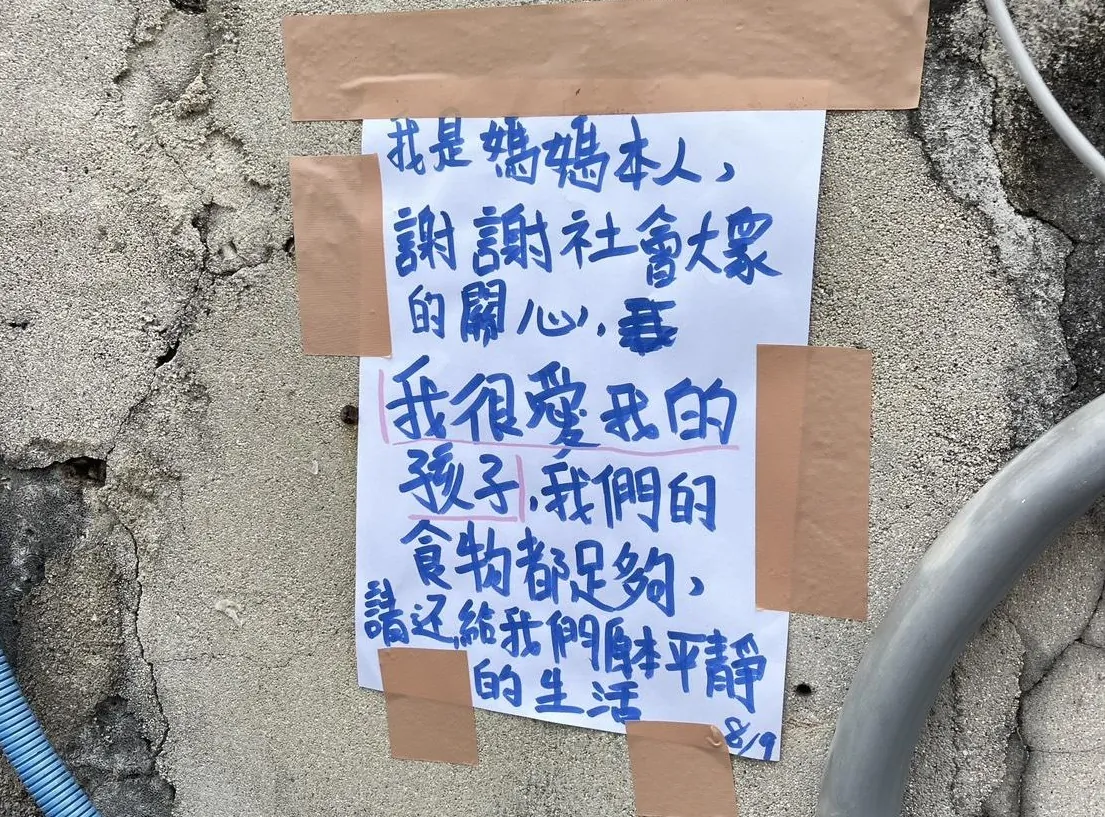 我是媽媽本人,
謝謝社會大眾
的關心,
我很愛我的
孩子,我們的
食物都足夠,
請还給我們原本平靜
的生活
8/9